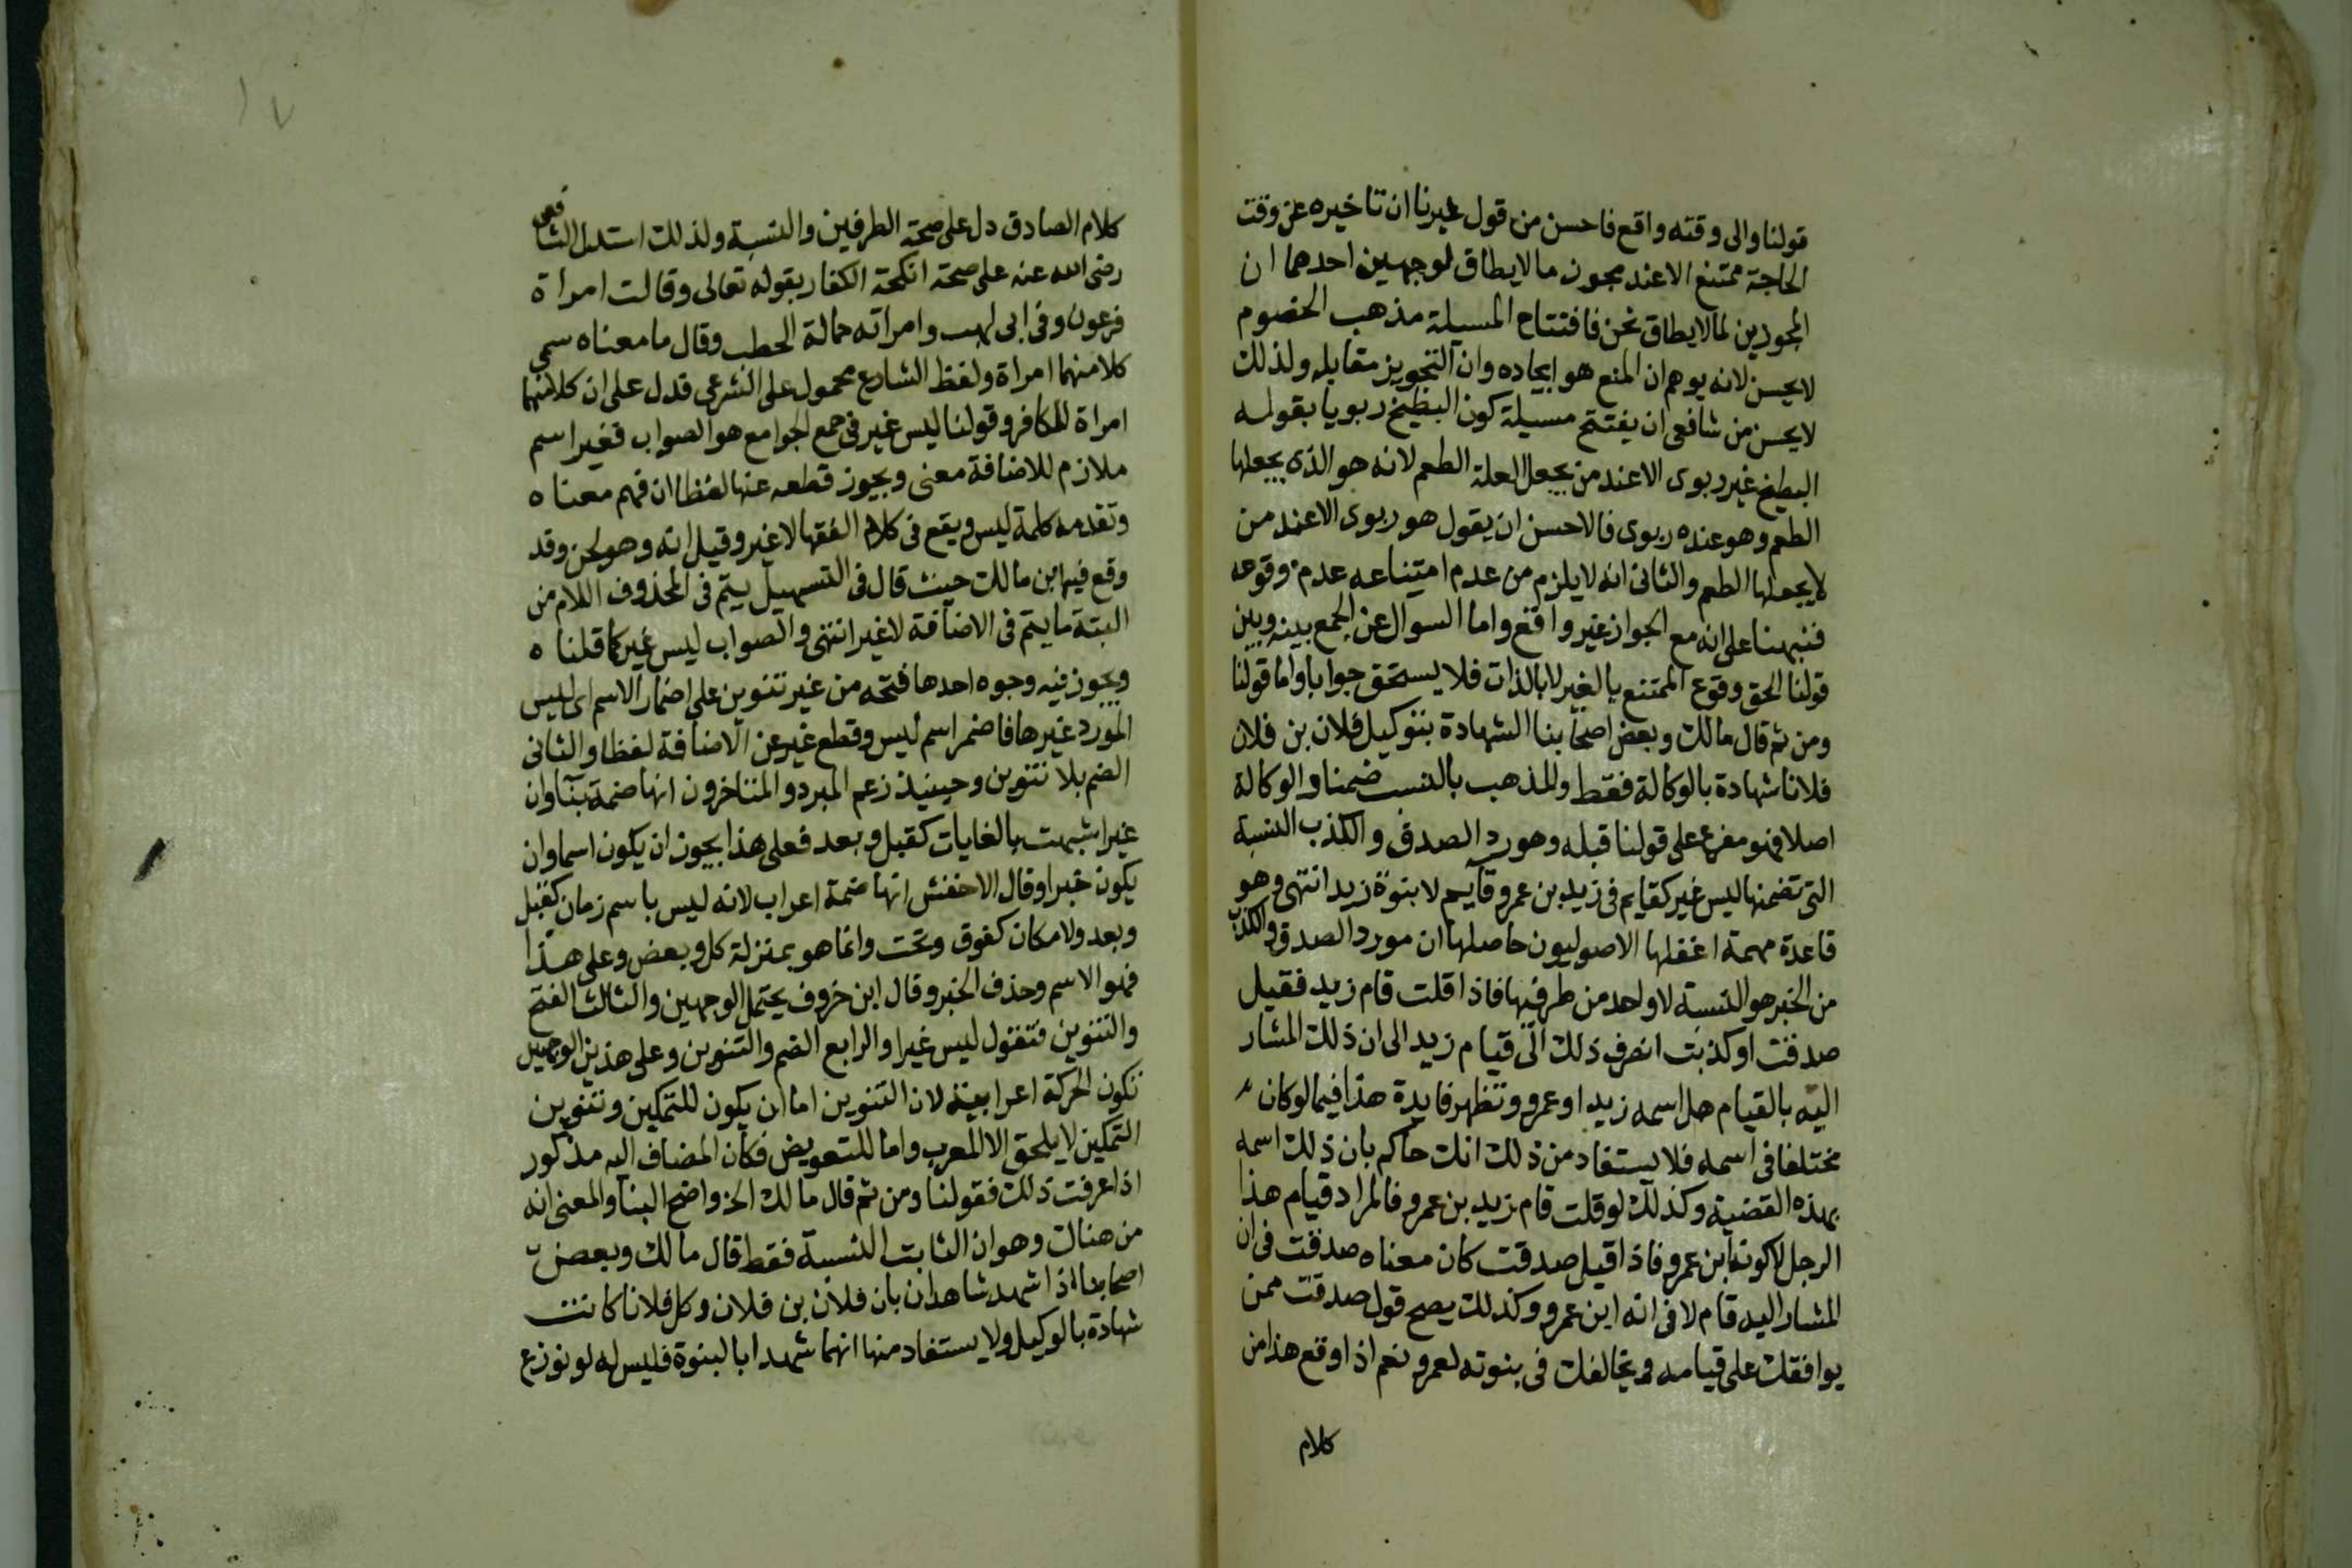 قولنا والى وقته واقع فاحسن من قول غيرنا ان تاخيره عن وقت
الحاجة ممتنع الا عند مجوز ما لا يطاق لوجهين احدهما ان
المجوزين لما لا يطاق نحن فافتتاح المسيلة مذهب الخصوم
لا يحسن لانه يوهم ان المنع هو ايجاده وان التجويز مقابله ولذلك
لا يحسن من شافعى ان يفتتح مسيلة كون البطيخ ربويا بقوله
البطيخ غير ربوى الا عند من يجعل العلة الطعم لانه هو الذى يجعلها
الطعم وهو عنده ربوى فالاحسن ان يقول هو ربوى الا عند من
لا يجعلها الطعم والثانى انه لا يلزم من عدم امتناعه عدم وقوعه
فنبهنا على انه مع الجواز غير واقع واما السوال عن الجمع بينه وبين
قولنا الحق وقوع الممتنع بالغير لا بالذات فلا يستحق جوابا واما قولنا
ومن ثم قال مالك وبعض اصحابنا الشهادة بتوكيل فلان بن فلان
فلانا شهادة بالوكالة فقط والمذهب بالنسب ضمنا والوكالة
اصلا فهو مفرع على قولنا قبله ومورد الصدق والكذب النسبة
التى تضمنها ليس غير كقايم فى زيد بن عمرو قآيم لا بنوة زيد انتهى وهو
قاعدة مهمة اغفلها الاصوليون حاصلها ان مورد الصدق والكذب
من الخبر هو النسبة لا واحد من طرفيها فاذا قلت قام زيد فقيل
صدقت او كذبت انصرف ذلك الى قيام زيد الى ان ذلك المشار
اليه بالقيام هل اسمه زيد او عمرو وتظهر فايدة هذا فيما لو كان
مختلفا فى اسمه فلا يستفاد من ذلك انك حاكم بان ذلك اسمه
بهذه القضية وكذلك لو قلت قام زيد بن عمرو فالمراد قيام هذا
الرجل لا كونه ابن عمرو فاذا قيل صدقت كان معناه صدقت فى ان
المشار اليه قام لا فى انه ابن عمرو وكذلك يصح قول صدقت ممن
يوافقك على قيامه ويخالفك فى بنوته لعمرو نعم اذا وقع هذا من
كلام
كلام الصادق دل على صحة الطرفين والنسبة ولذلك استدل الشافعى
رضى الله عنه على صحة انكحة الكفار بقوله تعالى وقالت امراة
فرعون وفى ابى لهب وامراته حمالة الحطب وقال ما معناه سمى
كلا منهما امراة ولفظ الشارع محمول على الشرعى فدل على ان كلا منهما
امراة للكافر وقولنا ليس غير فى جمع الجوامع هو الصواب فغير اسم
ملازم للاضافة معنى ويجوز قطعه عنها لفظا ان فهم معناه
وتقدمه كلمة ليس ويقع فى كلام الفقها لا غير وقيل انه وهو لحن وقد
وقع فيها بن مالك حيث قال فى التسهيل يتم فى المحذوف اللام من
البتة ما يتم فى الاضافة لا غير انتهى والصواب ليس غير كما قلناه
ويجوز فيه وجوه احدها فتحه من غير تنوين على اضمار الاسم اى ليس
المورد غيرها فاضمر اسم ليس وقطع غير عن الاضافة لفظا والثانى
الضم بلا تنوين وحينيذ زعم المبرد والمتاخرون انها ضمة بنآ وان
غير اشبهت بالغايات كقبل وبعد فعلى هذا يجوز ان يكون اسما وان
يكون خبرا وقال الاخفش انها ضمة اعراب لانه ليس باسم زمان كقبل
وبعد ولا مكان كفوق وتحت وانما هو بمنزلة كل وبعض وعلى هذا
فهو الاسم وحذف الخبر وقال ابن خروف يحتمل الوجهين والثالث الفتح
والتنوين فتقول ليس غيرا والرابع الضم والتنوين وعلى هذين الوجهين
تكون الحركة اعرابية لان التنوين اما ان يكون للتمكين وتنوين
التمكين لا يلحق الا المعرب واما للتعويض فكان المضاف اليه مذكور
اذا عرفت ذلك فقولنا ومن ثم قال مالك الخ واضح البنا والمعنى انه
من هناك وهو ان الثابت النسبة فقط قال مالك وبعض
اصحابنا اذا شهد شاهدان بان فلان بن فلان وكل فلانا كانت
شهادة بالوكيل ولا يستفاد منها انهما شهدا بالبنوة فليس له لو نوزع